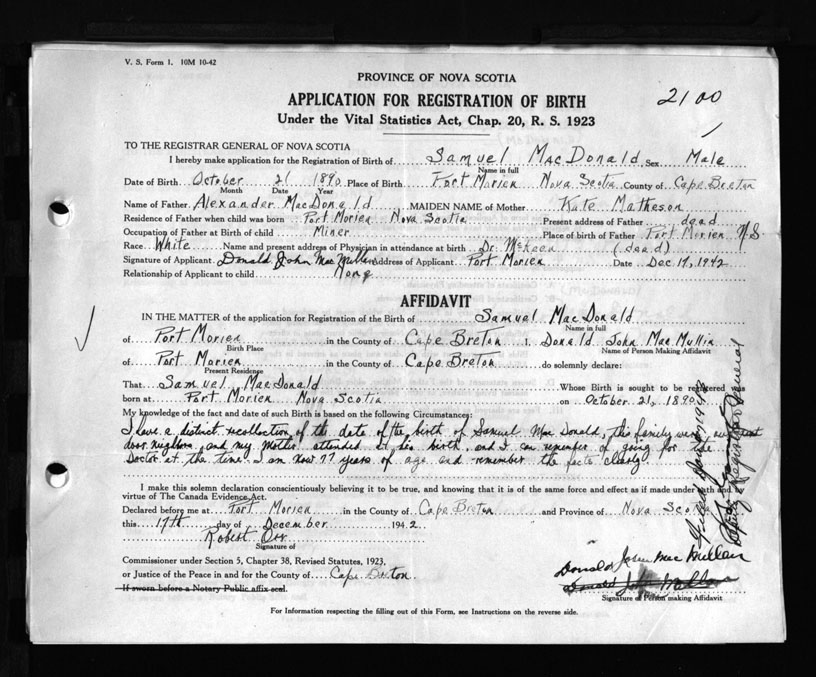 V. S. Form 1. 10M 10-42
PROVINCE OF NOVA SCOTIA
APPLICATION FOR REGISTRATION OF BIRTH
2100
Under the Vital Statistics Act, Chap. 20, R. S. 1923
TO THE REGISTRAR GENERAL OF NOVA SCOTIA
I hereby make application for the Registration of Birth of Samuel MacDonald, Sex Male
Name in full
Date of Birth October 21 1890 Place of Birth Port Morien Nova Scotia County of Cape Breton
Month Date Year
Name of Father Alexander MacDonald MAIDEN NAME of Mother Kate Matheson
Residence of Father when child was born Port Morien Nova Scotia Present address of Father dead
Occupation of Father at Birth of child Miner Place of birth of Father Port Morien N S
Race White Name and present address of Physician in attendance at birth Dr. McKeen (dead)
Signature of Applicant Donald John Mac Mullen Address of Applicant Port Morien Date Dec 17, 1942
Relationship of Applicant to child None
AFFIDAVIT
IN THE MATTER of the application for Registration of the Birth of Samuel MacDonald
Name in full
of Port Morien in the County of Cape Breton I, Donald John MacMullin
Birth Place Name of Person Making Affidavit
of Port Morien in the County of Cape Breton do solemnly declare:
Present Residence
That Samuel MacDonald Whose Birth is sought to be registered was
born at Port Morien Nova Scotia on October 21, 1890
My knowledge of the fact and date of such Birth is based on the following Circumstances:
I have a distinct recollection of the date of the birth of Samuel Mac Donald, this family were our
door neighbors and my Mother attended at his birth, and I can remember of going for the
Doctor at the time. I am now 77 years of age and remember the facts clearly.
I make this solemn declaration conscientiously believing it to be true, and knowing that it is of the same force and effect as if made under oath and
virtue of The Canada Evidence Act.
Declared before me at Port Morien in the County of Cape Breton and Province of Nova Scotia
this 17th day of December 1942
Robert Orr
Signature of
Commissioner under Section 5, Chapter 38, Revised Statutes, 1923,
or Justice of the Peace in and for the County of Cape Breton
If sworn before a Notary Public affix seal.
Donald John Mac Mullen
Signature of Person making Affidavit
For Information respecting the filling out of this Form, see Instructions on the reverse side.
Registrar General